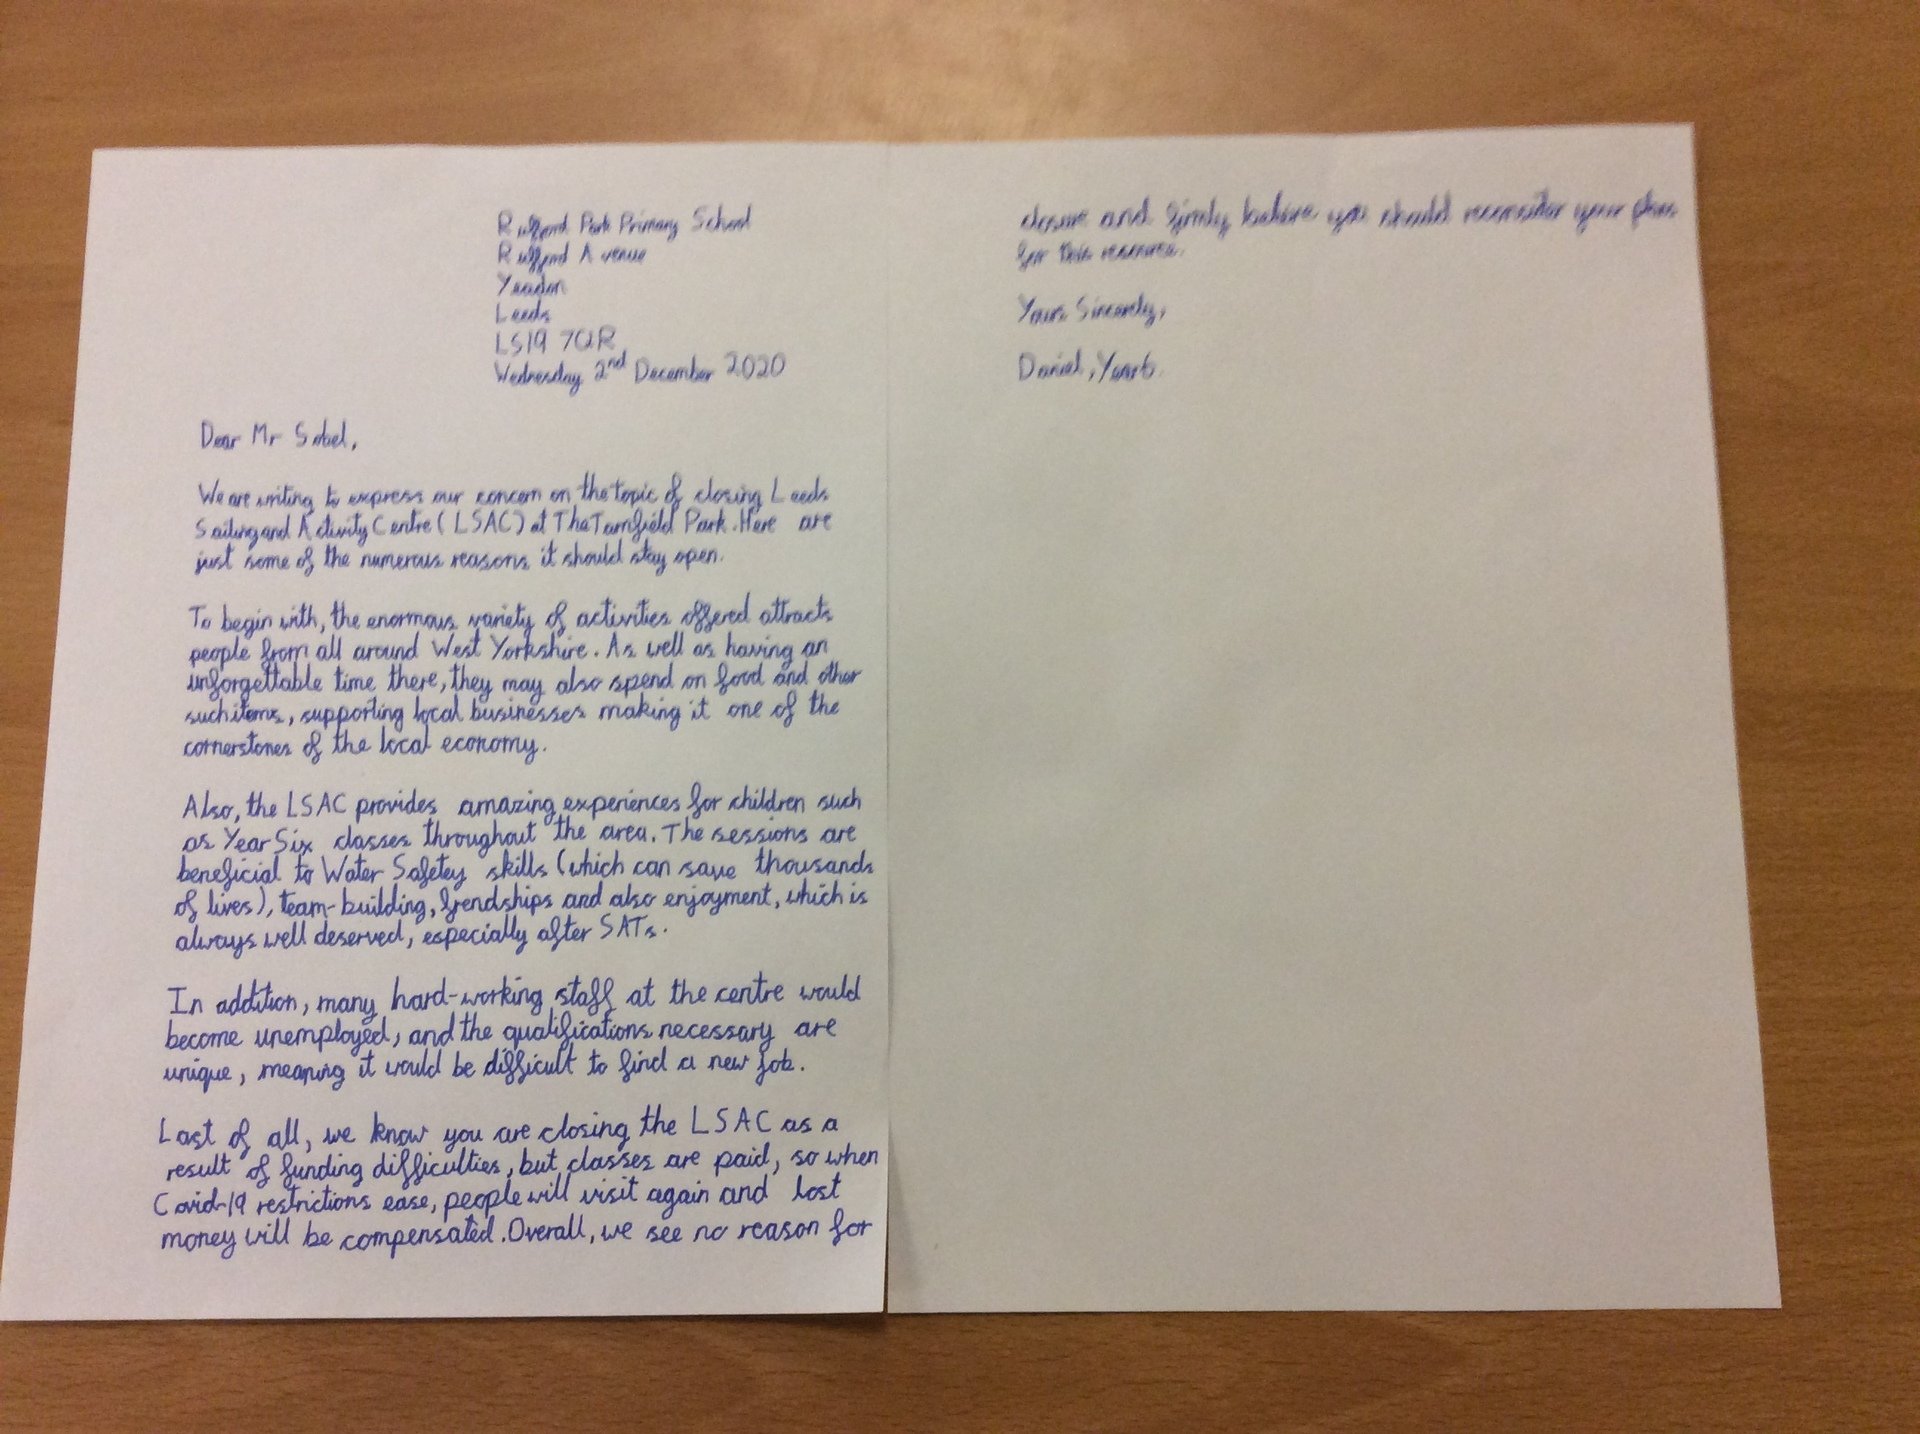 Rufford Park Primary School
Rufford Avenue
Yeadon
Leeds
LS19 7QR
Wednesday 2nd December 2020
Dear Mr Sobel,
We are writing to express our concern on the topic of closing Leeds
Sailing and Activity Centre (LSAC) at The Tarnfield Park. Here are
just some of the numerous reasons it should stay open.
To begin with, the enormous variety of activities offered attracts
people from all around West Yorkshire. As well as having an
unforgettable time there, they may also spend on food and other
such items, supporting local businesses making it one of the
cornerstones of the local economy.
Also, the LSAC provides amazing experiences for children such
as Year Six classes throughout the area. The sessions are
beneficial to Water Safety skills (which can save thousands
of lives), team-building, frendships and also enjoyment, which is
always well deserved, especially after SATs.
In addition, many hard-working staff at the centre would
become unemployed, and the qualifications necessary are
unique, meaning it would be difficult to find a new job.
Last of all, we know you are closing the LSAC as a
result of funding difficulties, but classes are paid, so when
Covid-19 restrictions ease, people will visit again and lost
money will be compensated. Overall, we see no reason for
closure and firmly believe you should reconsider your plans
for this reserve.
Yours Sincerely,
Daniel, Year 6.